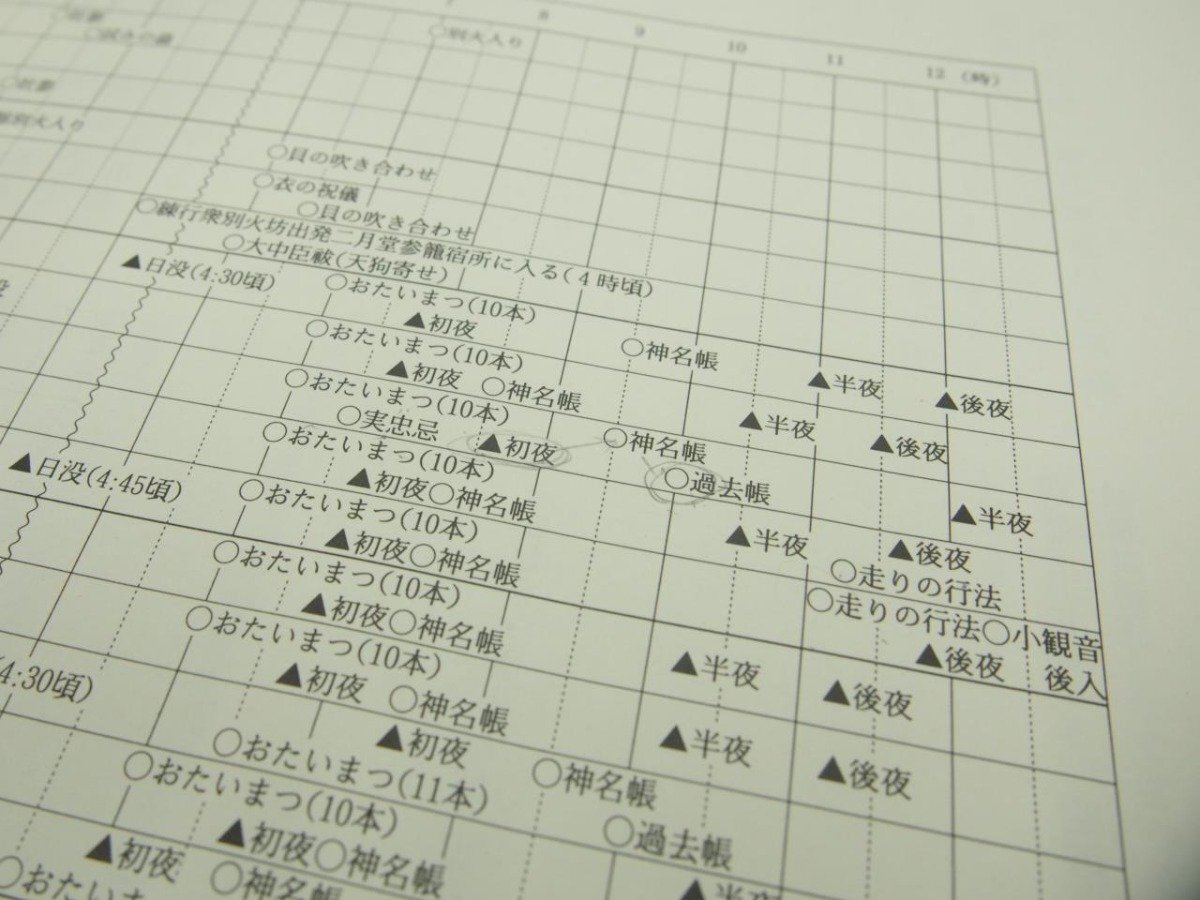 8 9 10 11 12 (時)
○別火入り
○貝の吹き合わせ
○衣の祝儀
○貝の吹き合わせ
○練行衆別火坊出発二月堂参籠宿所に入る(4時頃)
○大中臣祓(天狗寄せ)
▲日没(4:30頃) ○おたいまつ(10本)
▲初夜 ○神名帳 ▲半夜 ▲後夜
○おたいまつ(10本)
▲初夜 ○神名帳 ▲半夜 ▲後夜
○おたいまつ(10本)
○実忠忌 ▲初夜 ○神名帳 ○過去帳 ▲半夜
○おたいまつ(10本)
▲初夜○神名帳 ▲半夜 ▲後夜
○走りの行法
▲日没(4:45頃) ○おたいまつ(10本)
▲初夜○神名帳 ○走りの行法○小観音
▲後夜 後入
○おたいまつ(10本)
▲初夜○神名帳 ▲半夜 ▲後夜
○おたいまつ(10本)
▲初夜 ○神名帳 ▲半夜 ▲後夜
4:30頃) ○おたいまつ(11本)
▲初夜 ○神名帳 ○過去帳 ▲半夜
○おたいまつ(10本)
▲初夜○神名帳
○おたい
▲初夜 ○神名帳